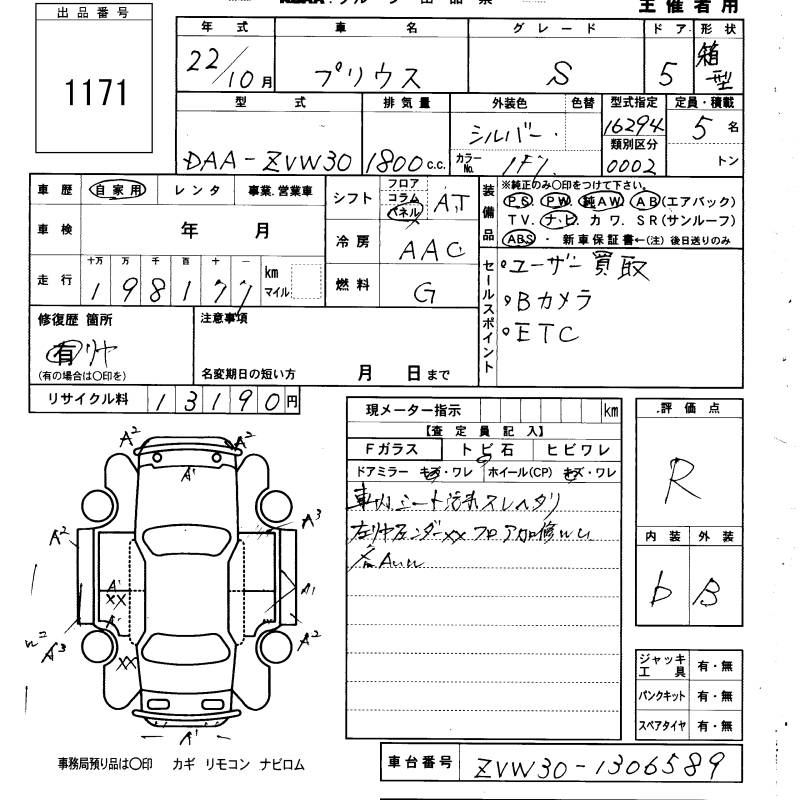 出品番号
1171
主催者用
年式 車名 グレード ドア 形状
22/10月 プリウス S 5 箱型
型式 排気量 外装色 色替 型式指定 定員・積載
DAA-ZVW30 1800c.c. シルバー 16294 5名
類別区分
カラーNo. 1F7 0002 トン
車歴 自家用 レンタ 事業.営業車
シフト フロア コラム パネル AT
装備品 ※純正のみ〇印をつけて下さい。
PS. PW. 純AW. AB(エアバック)
TV. ナビ カワ. SR(サンルーフ)
ABS・ 新車保証書←(注) 後日送りのみ
車検 年 月
冷房 AAC
走行 十万 万 千 百 十 一
198177 km マイル
燃料 G
セールスポイント
・ユーザー買取
・Bカメラ
・ETC
修復歴 箇所
有 リヤ
(有の場合は〇印を)
注意事項
名変期日の短い方 月 日まで
リサイクル料 13190円
現メーター指示 km
【査定員記入】
Fガラス トビ石 ヒビワレ
ドアミラー キズ・ワレ ホイール(CP) キズ・ワレ
車内シート汚れスレヘタリ
評価点
R
内装 外装
b B
A2 A2
A1
A3
A2
A1
XX
A1
A1
A2
A3
XX
A1
ジャッキ工具 有・無
パンクキット 有・無
スペアタイヤ 有・無
事務局預り品は〇印 カギ リモコン ナビロム
車台番号 ZVW30-1306589